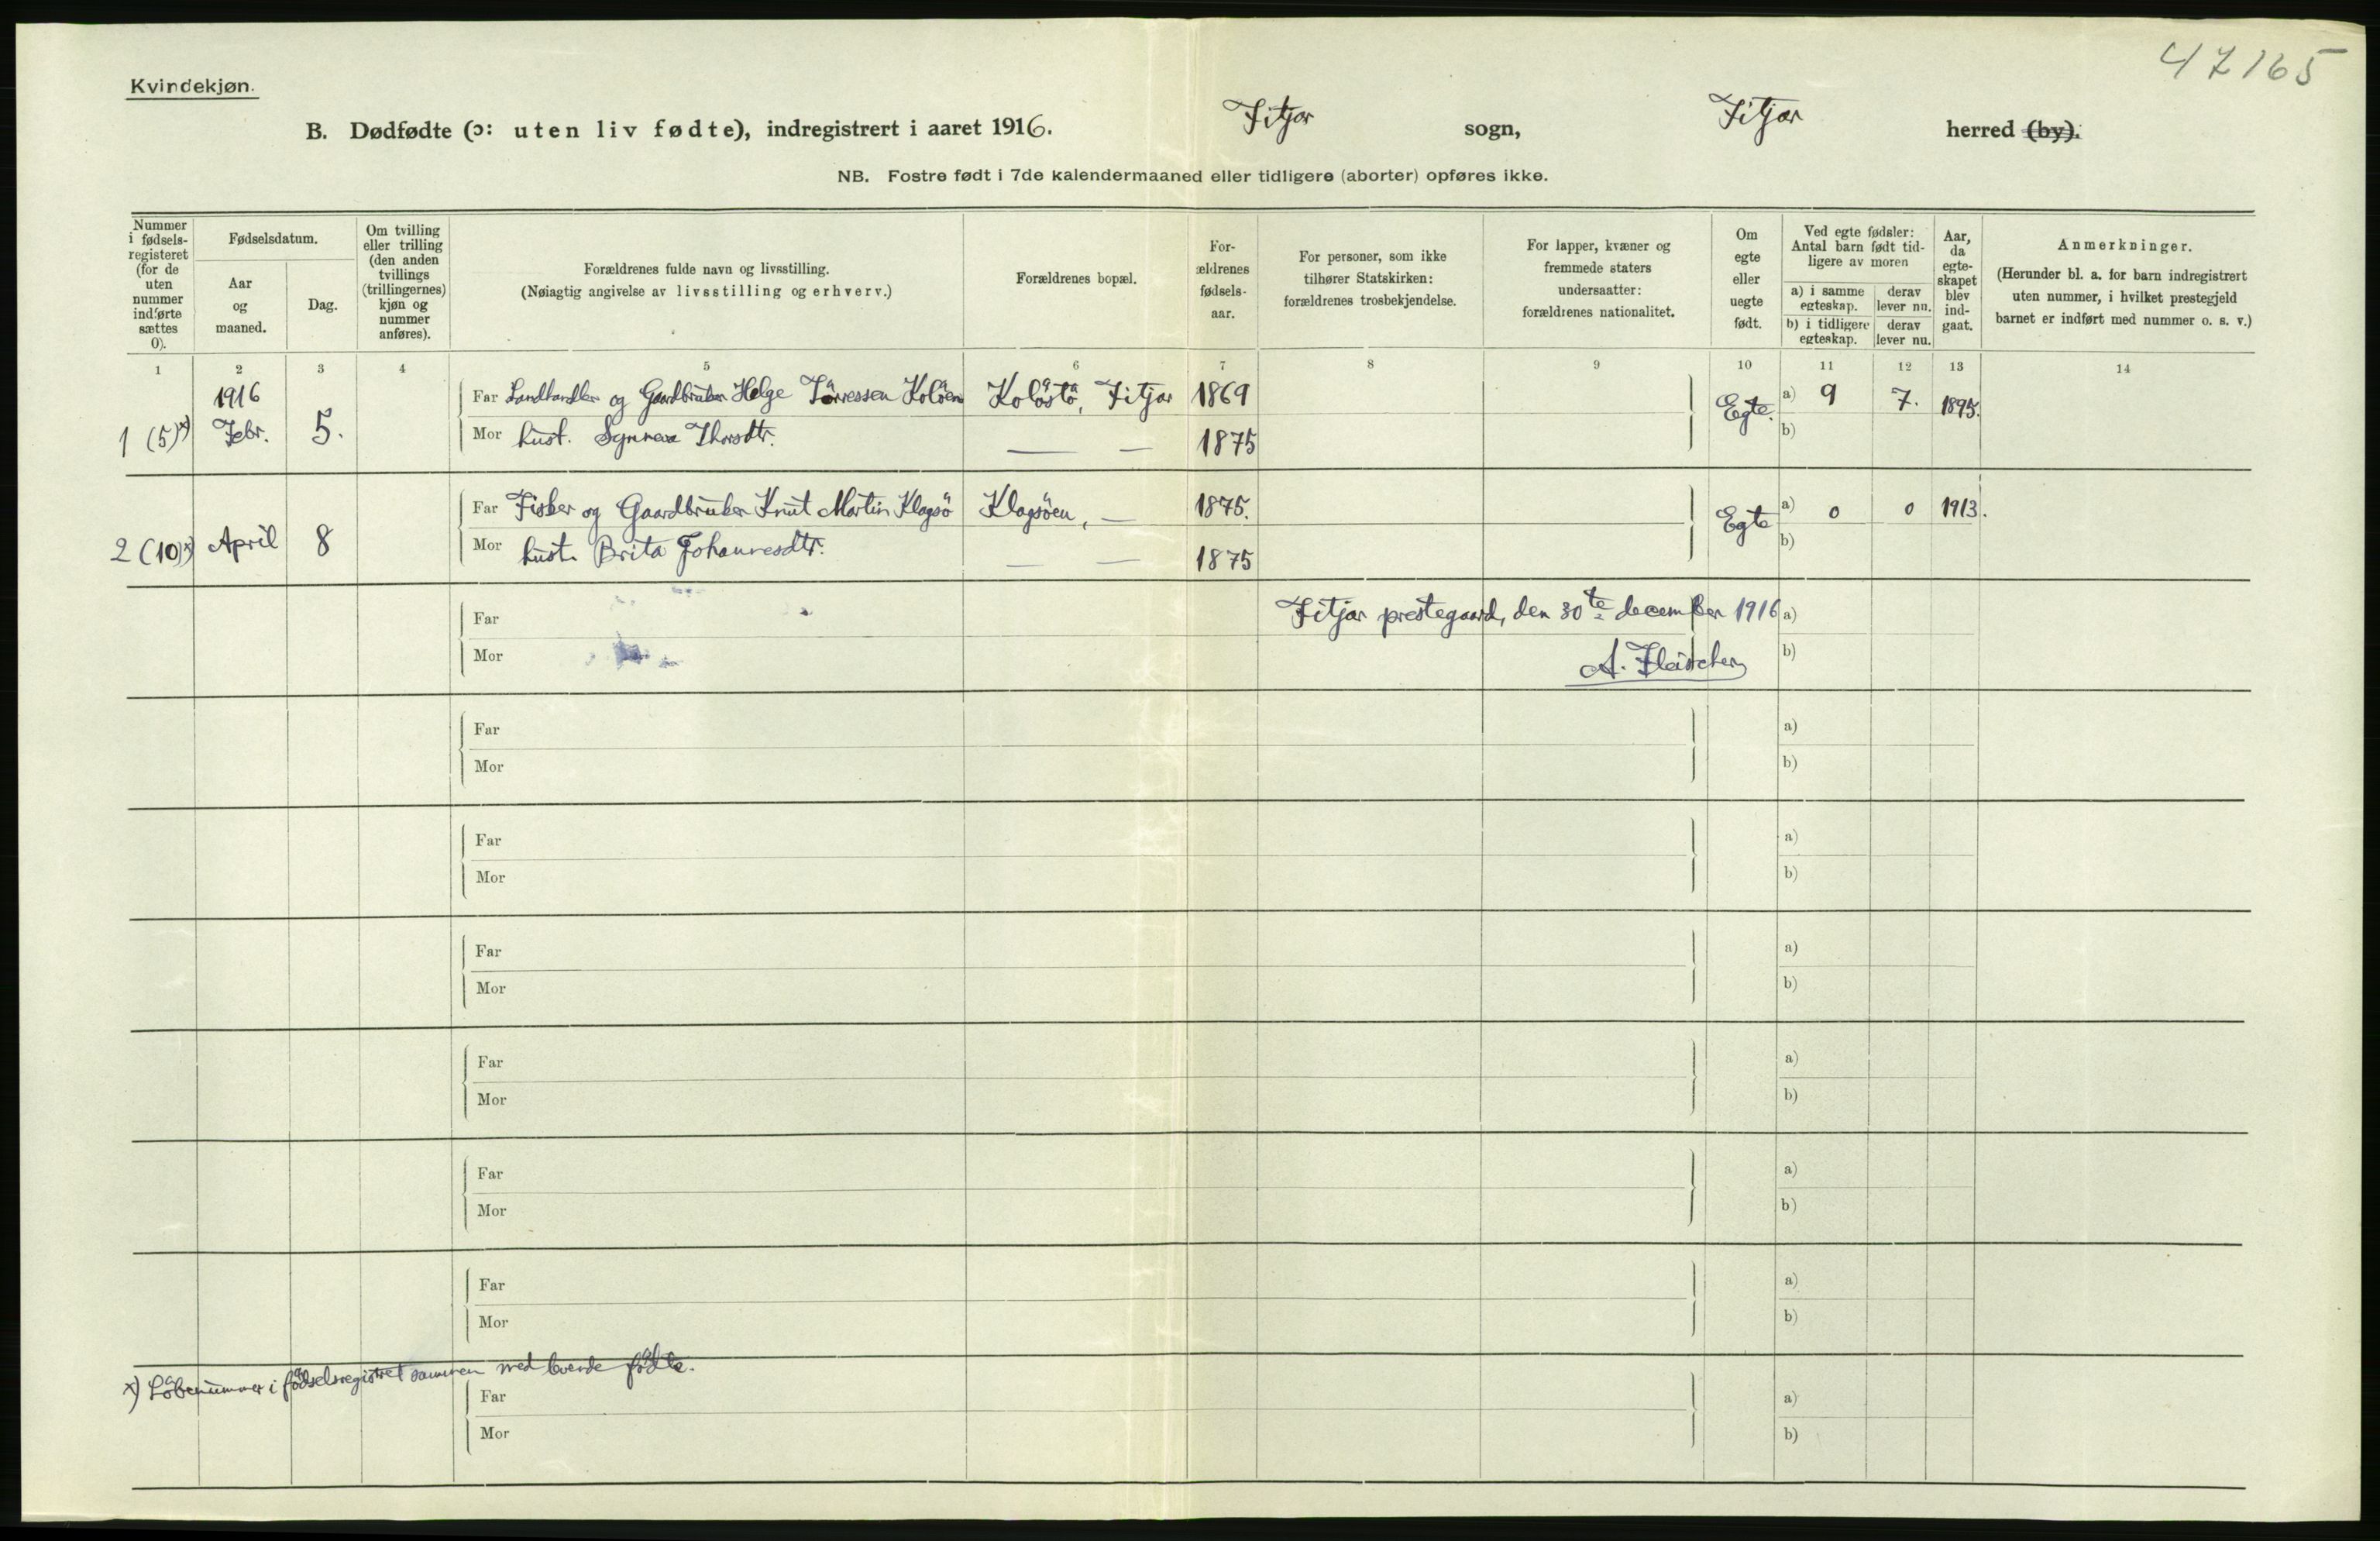 47165
Kvindekjøn.
B. Dødfødte (ɔ: uten liv fødte), indregistrert i aaret 1916. Fitjar sogn, Fitjar herred (by).
NB. Fostre født i 7de kalendermaaned eller tidligere (aborter) opføres ikke.
Nummer i fødsels-registeret (for de uten nummer indførte sættes 0).
Fødselsdatum.
Aar og maaned.
Dag.
Om tvilling eller trilling (den anden tvillings (trillingernes) kjøn og nummer anføres).
Forældrenes fulde navn og livsstilling.
(Nøiagtig angivelse av livsstilling og erhverv.)
Forældrenes bopæl.
For-ældrenes fødsels-aar.
For personer, som ikke tilhører Statskirken: forældrenes trosbekjendelse.
For lapper, kvæner og fremmede staters undersaatter: forældrenes nationalitet.
Om egte eller uegte født.
Ved egte fødsler: Antal barn født tid-ligere av moren
a) i samme egteskap. derav lever nu.
b) i tidligere egteskap. derav lever nu.
Aar, da egte-skapet blev ind-gaat.
Anmerkninger.
(Herunder bl. a. for barn indregistrert uten nummer, i hvilket prestegjeld barnet er indført med nummer o. s. v.)
1 2 3 4 5 6 7 8 9 10 11 12 13 14
1 (5)x) 1916 Febr. 5. Far Landhandler og Gaardbruker Helge Kolöen Fitjar 1869 Egte. a) 9 7. 1895.
Mor hust. Thorsdtr. — — 1875 b)
2 (10)x) April 8 Far Fisker og Gaardbruker Knut Martin Klagsö Klagsöen, — 1875. Egte a) 0 0 1913.
Mor hust. Brita Johannesdtr. — — 1875 b)
Far Fitjar prestegaard, den 30te december 1916 a)
Mor A. Fleischer b)
Far a)
Mor b)
Far a)
Mor b)
Far a)
Mor b)
Far a)
Mor b)
Far a)
Mor b)
Far a)
Mor b)
x) Löbenummer i födselsregistret sammen med levende födte.
Far a)
Mor b)